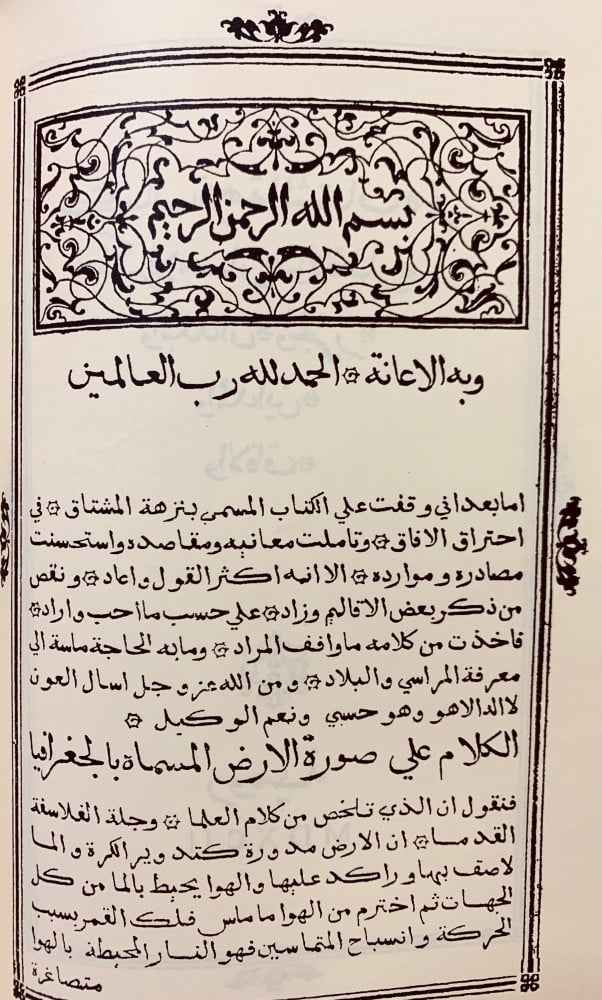 بسم الله الرحمن الرحيم
وبه الاعانة ۞ الحمد لله رب العالمين
اما بعد اني وقفت علي الكتاب المسمي بنزهة المشتاق ۞ في
احتراق الافاق ۞ وتاملت معانيه ومقاصده واستحسنت
مصادره وموارده ۞ الا انه اكثر القول واعاد ۞ ونقص
من ذكر بعض الاقاليم وزاد ۞ علي حسب ما احب واراد ۞
فاخذت من كلامه ما وافق المراد ۞ وما به الحاجة ماسة الي
معرفة المراسي والبلاد ۞ ومن الله عز وجل اسال العون
لا اله الا هو وهو حسبي ونعم الوكيل ۞
الكلام علي صورة الارض المسماة بالجغرافيا
فنقول ان الذي تلخص من كلام العلما ۞ وجلة الفلاسفة
القدما ۞ ان الارض مدورة كتدوير الكرة والما
لاصق بها وراكد عليها والهوا يحيط بالما من كل
الجهات ثم اخترم من الهوا ما ماس فلك القمر بسبب
الحركة وانسباح المتماسين فهو النار المحيطة بالهوا
متصاغرة